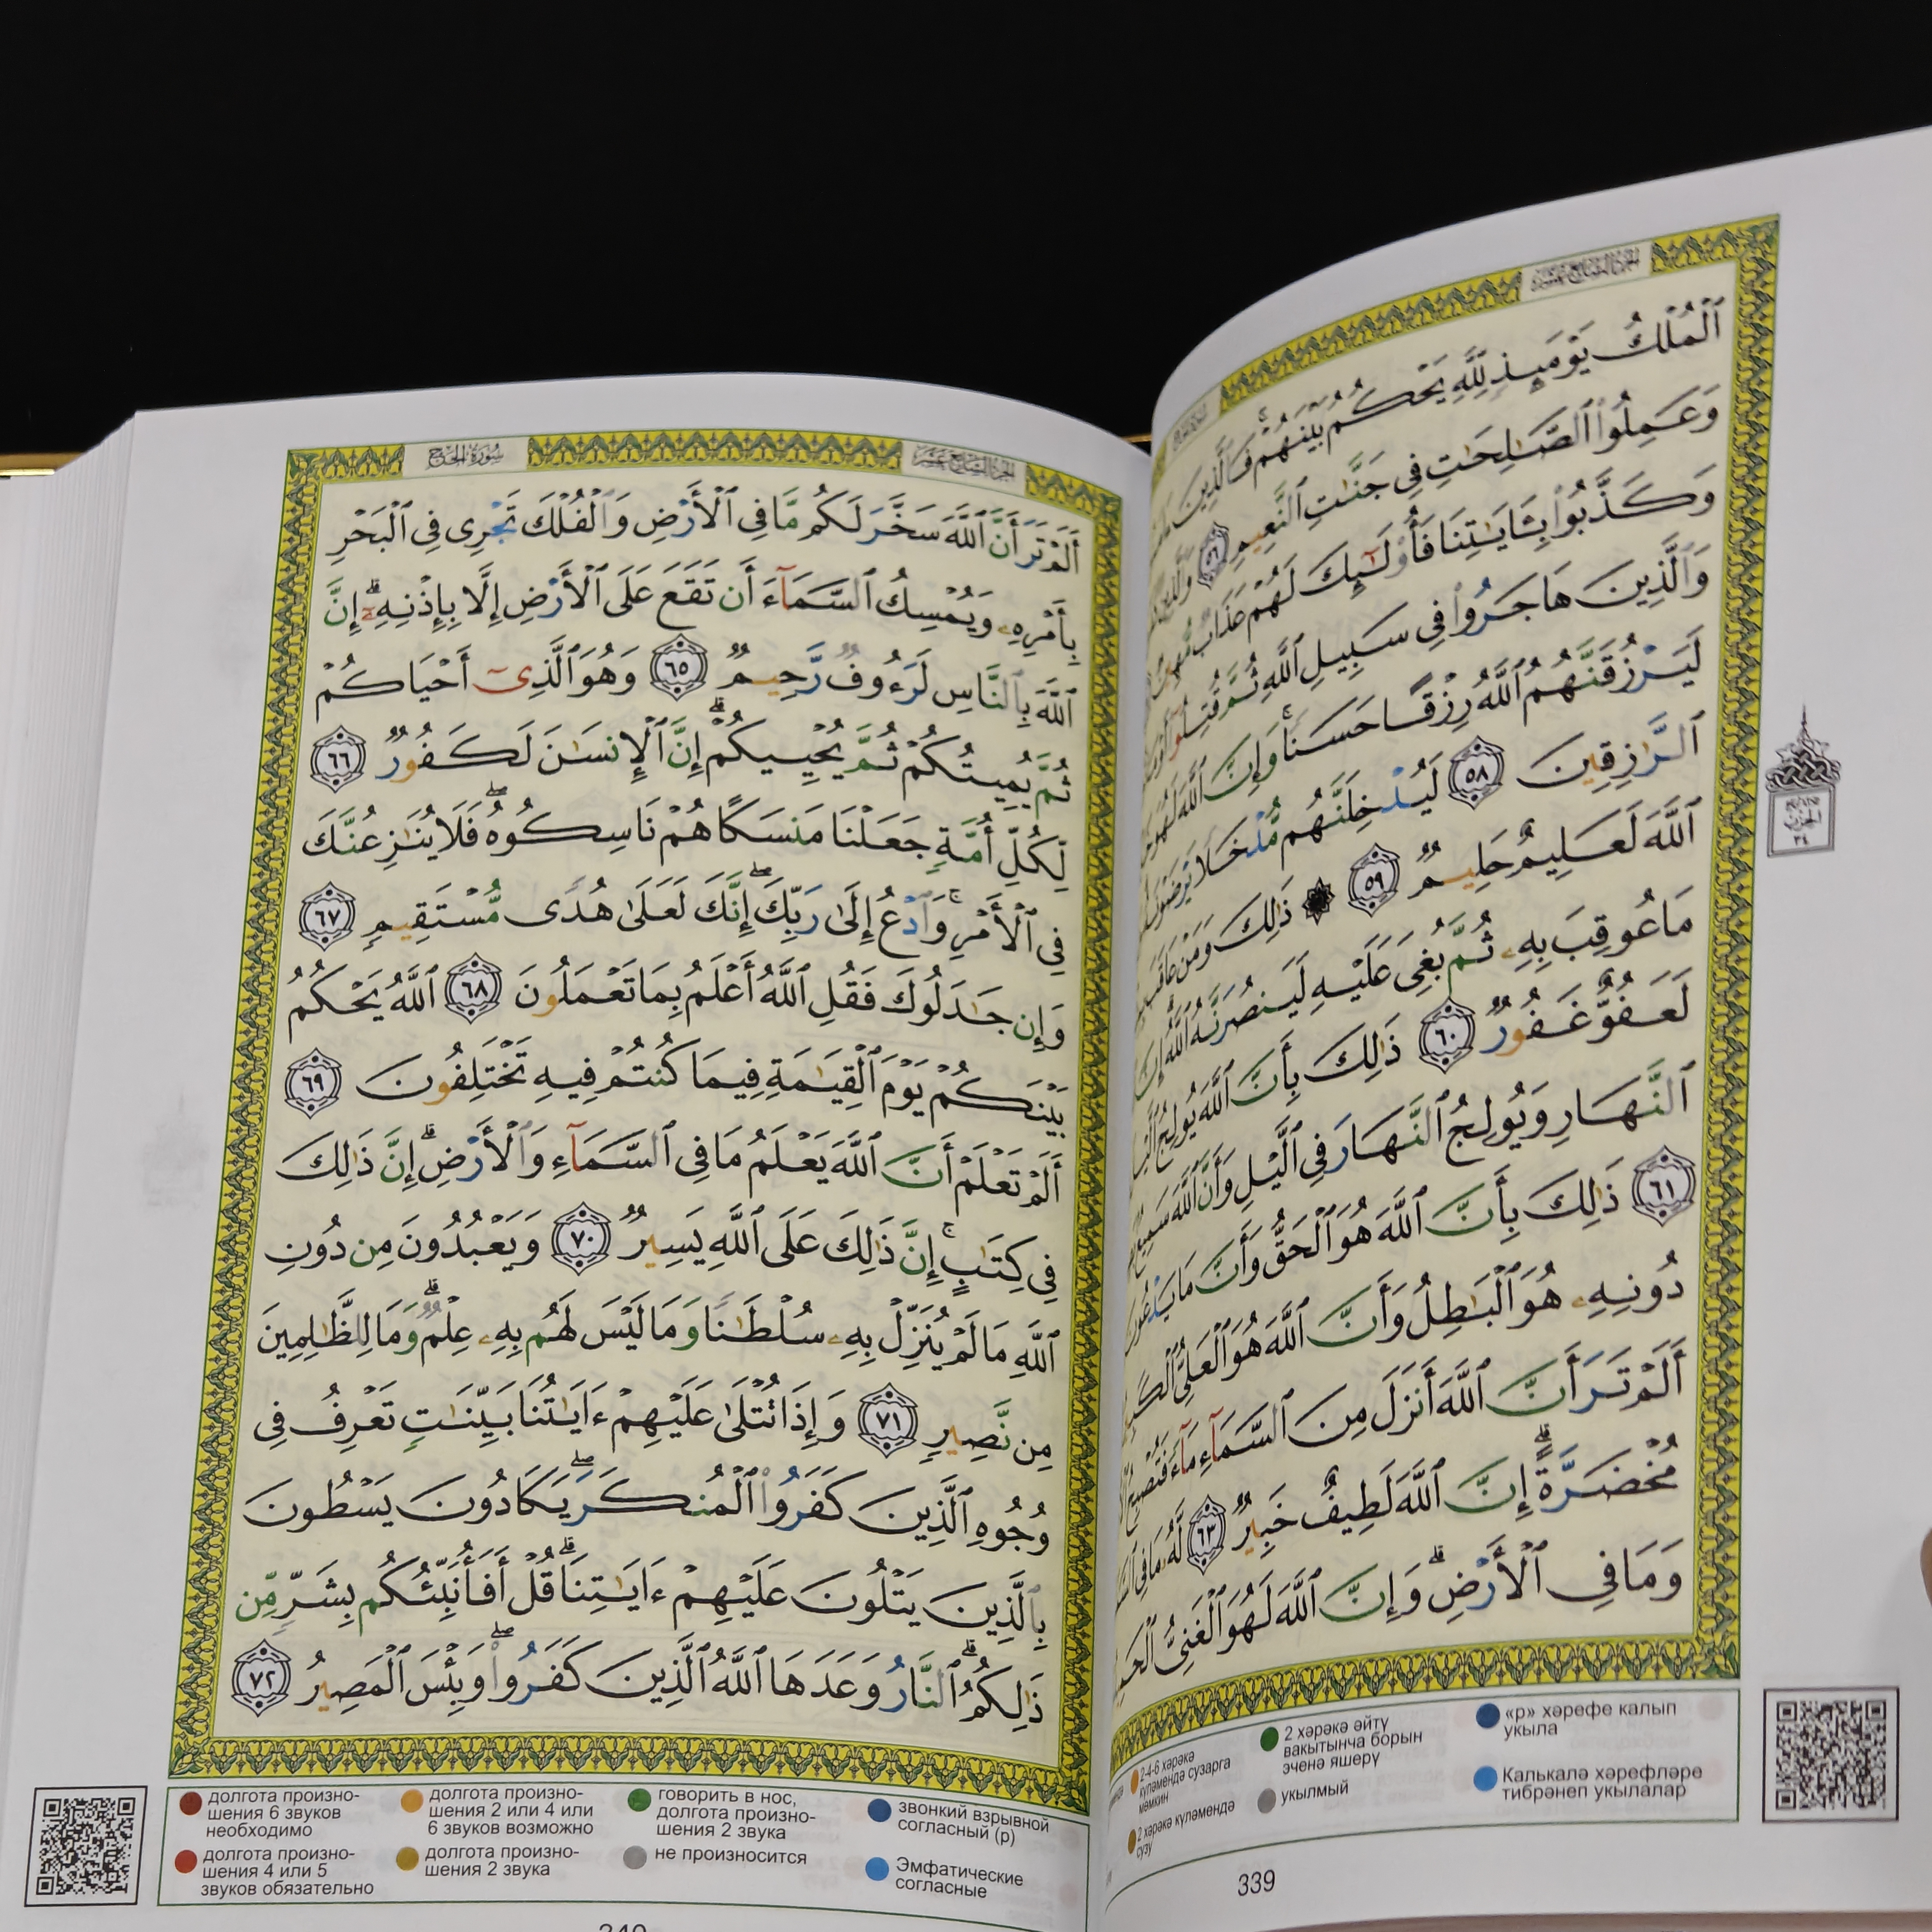 ٱلْمُلْكُ يَوْمَئِذٍ لِّلَّهِ يَحْكُمُ بَيْنَهُمْ ۚ فَٱلَّذِينَ
وَعَمِلُوا۟ ٱلصَّـٰلِحَـٰتِ فِى جَنَّـٰتِ ٱلنَّعِيمِ ٥٦ وَٱلَّذِينَ
وَكَذَّبُوا۟ بِـَٔايَـٰتِنَا فَأُو۟لَـٰٓئِكَ لَهُمْ عَذَابٌ مُّهِينٌ
وَٱلَّذِينَ هَاجَرُوا۟ فِى سَبِيلِ ٱللَّهِ ثُمَّ قُتِلُوٓا۟
لَيَرْزُقَنَّهُمُ ٱللَّهُ رِزْقًا حَسَنًا ۚ وَإِنَّ ٱللَّهَ لَهُوَ
ٱلرَّٰزِقِينَ ٥٨ لَيُدْخِلَنَّهُم مُّدْخَلًا يَرْضَوْنَهُۥ
ٱللَّهَ لَعَلِيمٌ حَلِيمٌ ٥٩ ۞ ذَٰلِكَ وَمَنْ عَاقَبَ
مَا عُوقِبَ بِهِۦ ثُمَّ بُغِىَ عَلَيْهِ لَيَنصُرَنَّهُ ٱللَّهُ ۗ إِنَّ
لَعَفُوٌّ غَفُورٌ ٦٠ ذَٰلِكَ بِأَنَّ ٱللَّهَ يُولِجُ
ٱلنَّهَارِ وَيُولِجُ ٱلنَّهَارَ فِى ٱلَّيْلِ وَأَنَّ ٱللَّهَ سَمِيعٌۢ
٦١ ذَٰلِكَ بِأَنَّ ٱللَّهَ هُوَ ٱلْحَقُّ وَأَنَّ مَا يَدْعُونَ
دُونِهِۦ هُوَ ٱلْبَـٰطِلُ وَأَنَّ ٱللَّهَ هُوَ ٱلْعَلِىُّ
أَلَمْ تَرَ أَنَّ ٱللَّهَ أَنزَلَ مِنَ ٱلسَّمَآءِ مَآءً فَتُصْبِحُ
مُخْضَرَّةً ۗ إِنَّ ٱللَّهَ لَطِيفٌ خَبِيرٌ ٦٣ لَّهُۥ مَا فِى
وَمَا فِى ٱلْأَرْضِ ۗ وَإِنَّ ٱللَّهَ لَهُوَ ٱلْغَنِىُّ
الحزب
٣٤
2-4-6 хәрәкә
күләмендә сузарга
мөмкин
2 хәрәкә күләмендә
сузу
2 хәрәкә әйтү
вакытынча борын
эченә яшерү
укылмый
«р» хәрефе калып
укыла
Калькалә хәрефләре
тибрәнеп укылалар
339
الجزء السابع عشر
سورة الحج
أَلَمْ تَرَ أَنَّ ٱللَّهَ سَخَّرَ لَكُم مَّا فِى ٱلْأَرْضِ وَٱلْفُلْكَ تَجْرِى فِى ٱلْبَحْرِ
بِأَمْرِهِۦ وَيُمْسِكُ ٱلسَّمَآءَ أَن تَقَعَ عَلَى ٱلْأَرْضِ إِلَّا بِإِذْنِهِۦٓ ۗ إِنَّ
ٱللَّهَ بِٱلنَّاسِ لَرَءُوفٌ رَّحِيمٌ ٦٥ وَهُوَ ٱلَّذِىٓ أَحْيَاكُمْ
ثُمَّ يُمِيتُكُمْ ثُمَّ يُحْيِيكُمْ ۗ إِنَّ ٱلْإِنسَـٰنَ لَكَفُورٌ ٦٦
لِّكُلِّ أُمَّةٍ جَعَلْنَا مَنسَكًا هُمْ نَاسِكُوهُ ۖ فَلَا يُنَـٰزِعُنَّكَ
فِى ٱلْأَمْرِ ۚ وَٱدْعُ إِلَىٰ رَبِّكَ ۖ إِنَّكَ لَعَلَىٰ هُدًى مُّسْتَقِيمٍ ٦٧
وَإِن جَـٰدَلُوكَ فَقُلِ ٱللَّهُ أَعْلَمُ بِمَا تَعْمَلُونَ ٦٨ ٱللَّهُ يَحْكُمُ
بَيْنَكُمْ يَوْمَ ٱلْقِيَـٰمَةِ فِيمَا كُنتُمْ فِيهِ تَخْتَلِفُونَ ٦٩
أَلَمْ تَعْلَمْ أَنَّ ٱللَّهَ يَعْلَمُ مَا فِى ٱلسَّمَآءِ وَٱلْأَرْضِ ۗ إِنَّ ذَٰلِكَ
فِى كِتَـٰبٍ ۚ إِنَّ ذَٰلِكَ عَلَى ٱللَّهِ يَسِيرٌ ٧٠ وَيَعْبُدُونَ مِن دُونِ
ٱللَّهِ مَا لَمْ يُنَزِّلْ بِهِۦ سُلْطَـٰنًا وَمَا لَيْسَ لَهُم بِهِۦ عِلْمٌ ۗ وَمَا لِلظَّـٰلِمِينَ
مِن نَّصِيرٍ ٧١ وَإِذَا تُتْلَىٰ عَلَيْهِمْ ءَايَـٰتُنَا بَيِّنَـٰتٍ تَعْرِفُ فِى
وُجُوهِ ٱلَّذِينَ كَفَرُوا۟ ٱلْمُنكَرَ ۖ يَكَادُونَ يَسْطُونَ
بِٱلَّذِينَ يَتْلُونَ عَلَيْهِمْ ءَايَـٰتِنَا ۗ قُلْ أَفَأُنَبِّئُكُم بِشَرٍّ مِّن
ذَٰلِكُمُ ۗ ٱلنَّارُ وَعَدَهَا ٱللَّهُ ٱلَّذِينَ كَفَرُوا۟ ۖ وَبِئْسَ ٱلْمَصِيرُ ٧٢
долгота произно-
шения 6 звуков
необходимо
долгота произно-
шения 4 или 5
звуков обязательно
долгота произно-
шения 2 или 4 или
6 звуков возможно
долгота произно-
шения 2 звука
говорить в нос,
долгота произно-
шения 2 звука
не произносится
звонкий взрывной
согласный (р)
Эмфатические
согласные
340